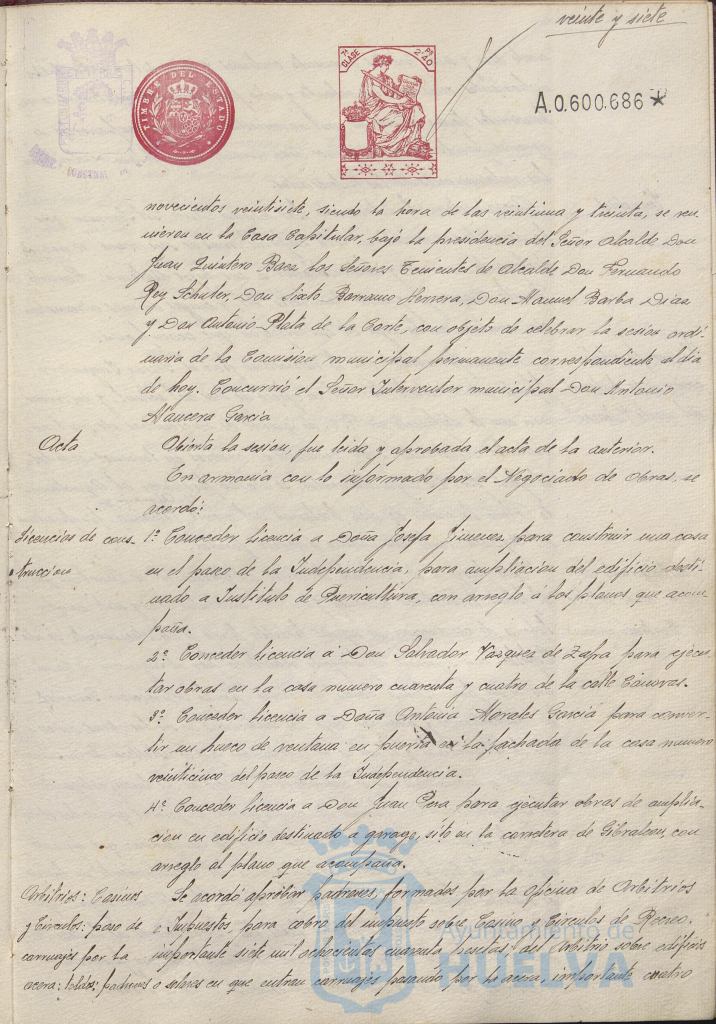 veinte y siete
TIMBRE DEL ESTADO
7ª CLASE
Pts 2'40
A.0.600.686 *
novecientos veintisiete, siendo la hora de las veintiuna y treinta, se reu-
nieron en la Casa Capitular, bajo la presidencia del Señor Alcalde Don
Juan Quintero Baez los Señores Tenientes de Alcalde Don Fernando
Rey Schuter, Don Sixto Barranco Herrera, Don Manuel Barba Diaz
y Don Antonio Plata de la Corte, con objeto de celebrar la sesion ordi-
naria de la Comision municipal permanente correspondiente al dia
de hoy. Concurrió el Señor Interventor municipal Don Antonio
Mancera Garcia
Acta
Abierta la sesion, fue leida y aprobada el acta de la anterior.
En armonia con lo informado por el Negociado de Obras, se
acordó:
Licencias de cons-
truccion
1º Conceder licencia a Doña Josefa Jimenez para construir una casa
en el paseo de la Independencia, para ampliacion del edificio desti-
nado a Instituto de Puericultura, con arreglo á los planos que acom-
paña.
2º Conceder licencia á Don Salvador Vazquez de Zafra para ejecu-
tar obras en la casa numero cuarenta y cuatro de la calle Cánovas.
3º Conceder licencia a Doña Antonia Morales Garcia para conver-
tir un hueco de ventana en puerta en la fachada de la casa numero
veinticinco del paseo de la Independencia.
4º Conceder licencia a Don Juan Pera para ejecutar obras de amplia-
cion en edificio destinado a garage, sito en la carretera de Gibraleon, con
arreglo al plano que acompaña.
Arbitrios: Casinos
y Circulos: paso de
carruajes por la
acera: toldos: padrones
Se acordó aprobar padrones, formados por la oficina de Arbitrios
e Impuestos, para cobro del impuesto sobre Casino y Circulos de Recreo.
importante siete mil ochocientas cuarenta pesetas: del Arbitrio sobre edificios
o solares en que entran carruajes pasando por la acera, importante cuatro
Ayuntamiento de
HUELVA